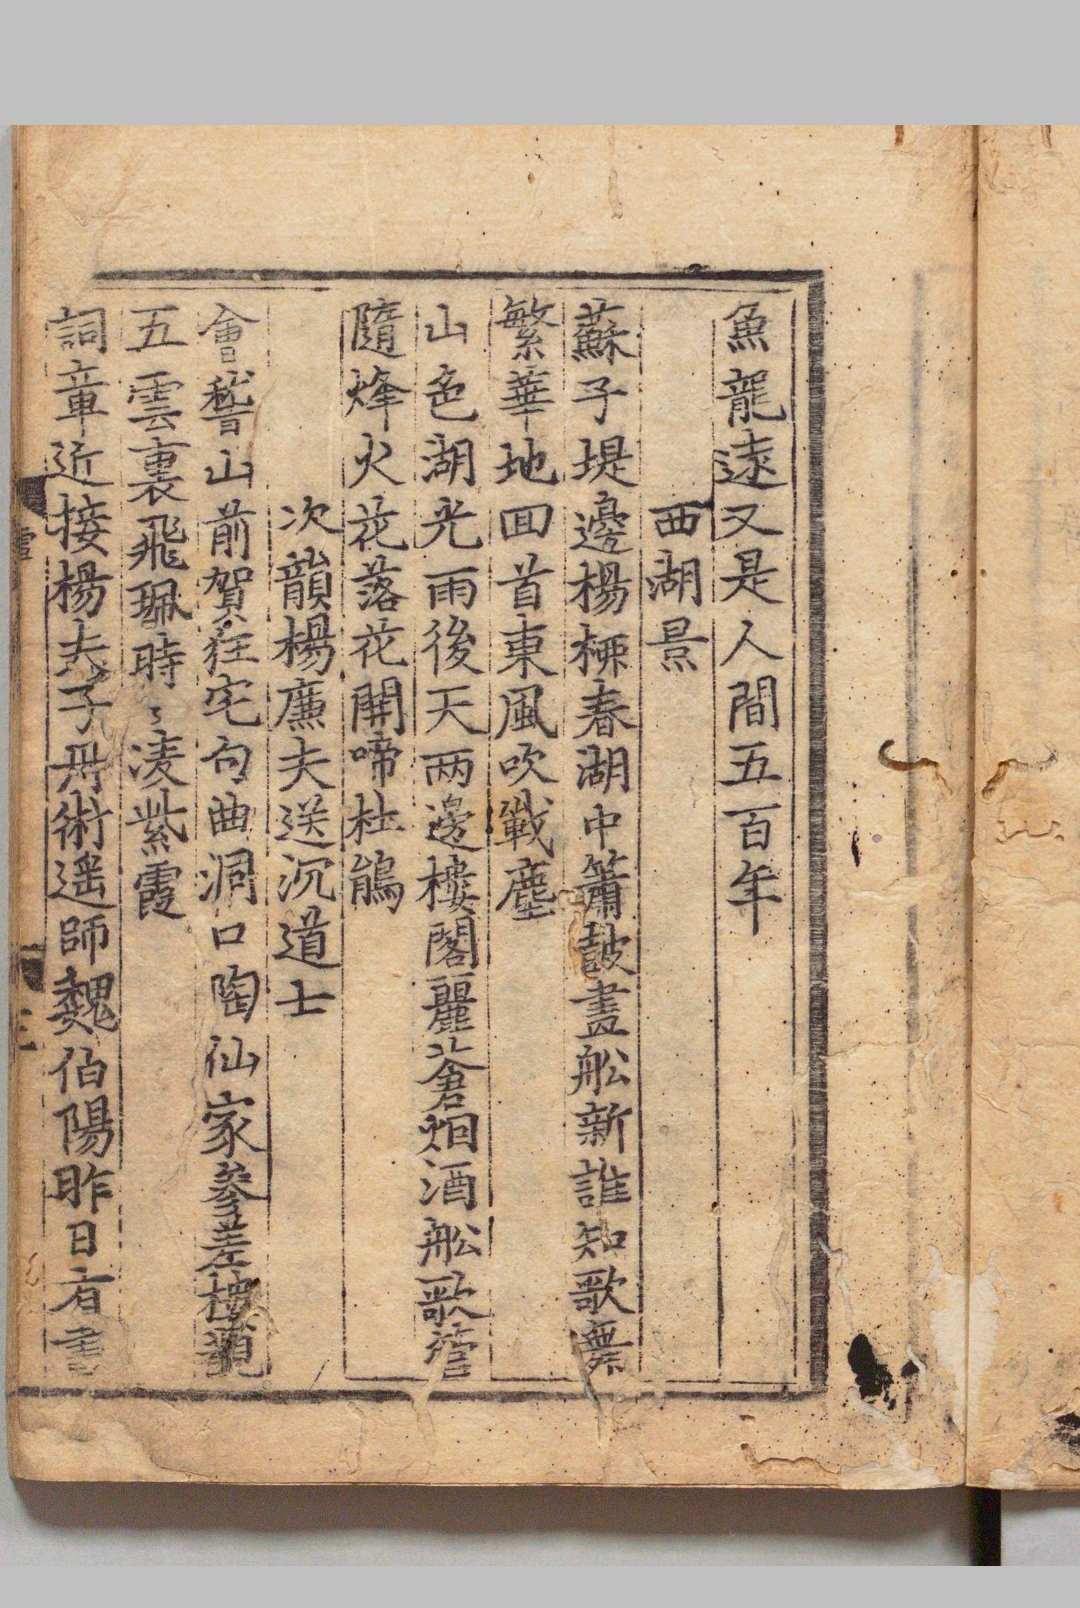 魚龍遠又是人間五百年
西湖景
蘇子堤邊楊柳春湖中簫鼓畫舩新誰知歌舞
繁華地回首東風吹戰塵
山色湖光雨後天两邊樓閣麗蒼烟酒舩歌管
隨烽火花落花開啼杜鵑
次韻楊廉夫送沉道士
會稽山前賀狂宅句曲洞口陶仙家參差樓觀
五雲裏飛珮時〻凌紫霞
詞章近接楊夫子丹術遥師魏伯陽昨日有書